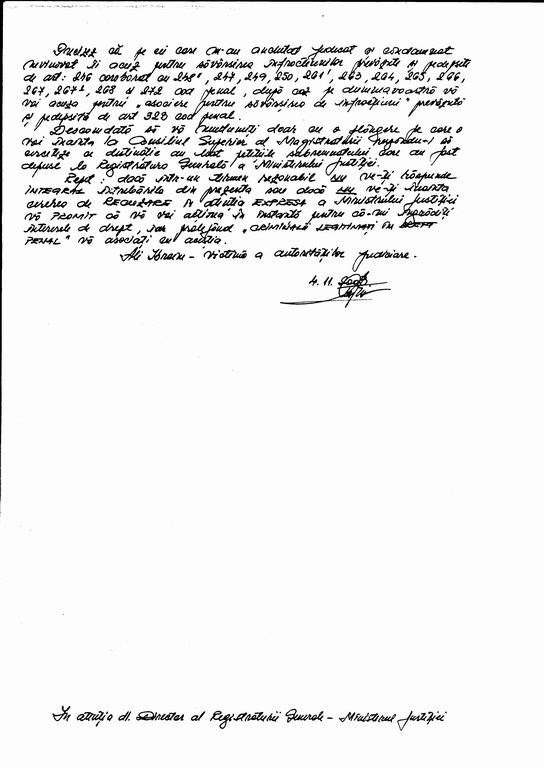 Precizez că pe cei care m-au anchetat judecat și condamnat
nevinovat îi acuz pentru săvârșirea infracțiunilor prevăzute și pedepsite
de art: 246 coroborat cu 248¹, 247, 249, 250, 261¹, 263, 264, 265, 266,
267, 267¹, 268 și 272 cod penal, după caz pe dumneavoastră vă
voi acuza pentru „asociere pentru săvârșirea de infracțiuni" prevăzută
și pedepsită de art 323 cod penal.
Deocamdată să vă mulțumiți doar cu o plângere pe care o
voi înainta la Consiliul Superior al Magistraturii
cerceteze ce destinație au avut petițiile subsemnatului care au fost
depuse la Registratura Generală a Ministerului Justiției.
Repet: dacă într-un termen rezonabil nu ve-ți răspunde
INTEGRAL întrebărilor din prezenta sau dacă nu ve-ți înainta
cererea de în atenția EXPRESĂ a Ministrului Justiției
vă PROMIT că vă voi în instanță pentru că-mi
interesele de drept, iar protejând „CRIMINALII LEGITIMAȚI ÎN DREPT
PENAL" vă asociați cu aceștia.
Ali - victimă a autorităților judiciare.
4. 11.
În atenția dl. Director al Registraturii Generale - Ministerul Justiției